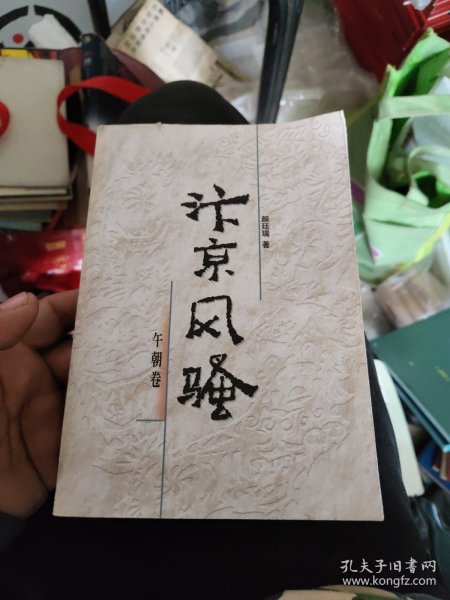 汴京风骚
颜廷瑞 著
午朝卷
孔夫子旧书网
www.kongfz.com